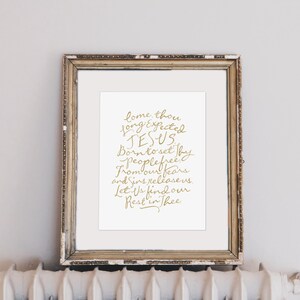 Come thou
long Expected
JESUS
Born to set Thy
people free
From our Fears
and sins release us
Let Us find our
Rest in Thee